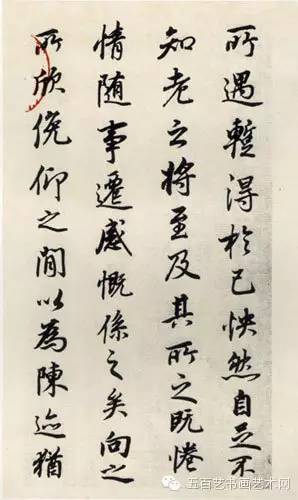 所遇暫得於己怏然自足不
知老之將至及其所之既惓
情随事遷感慨係之矣向之
所欣俛仰之間以為陳迹猶
五百艺书画艺术网